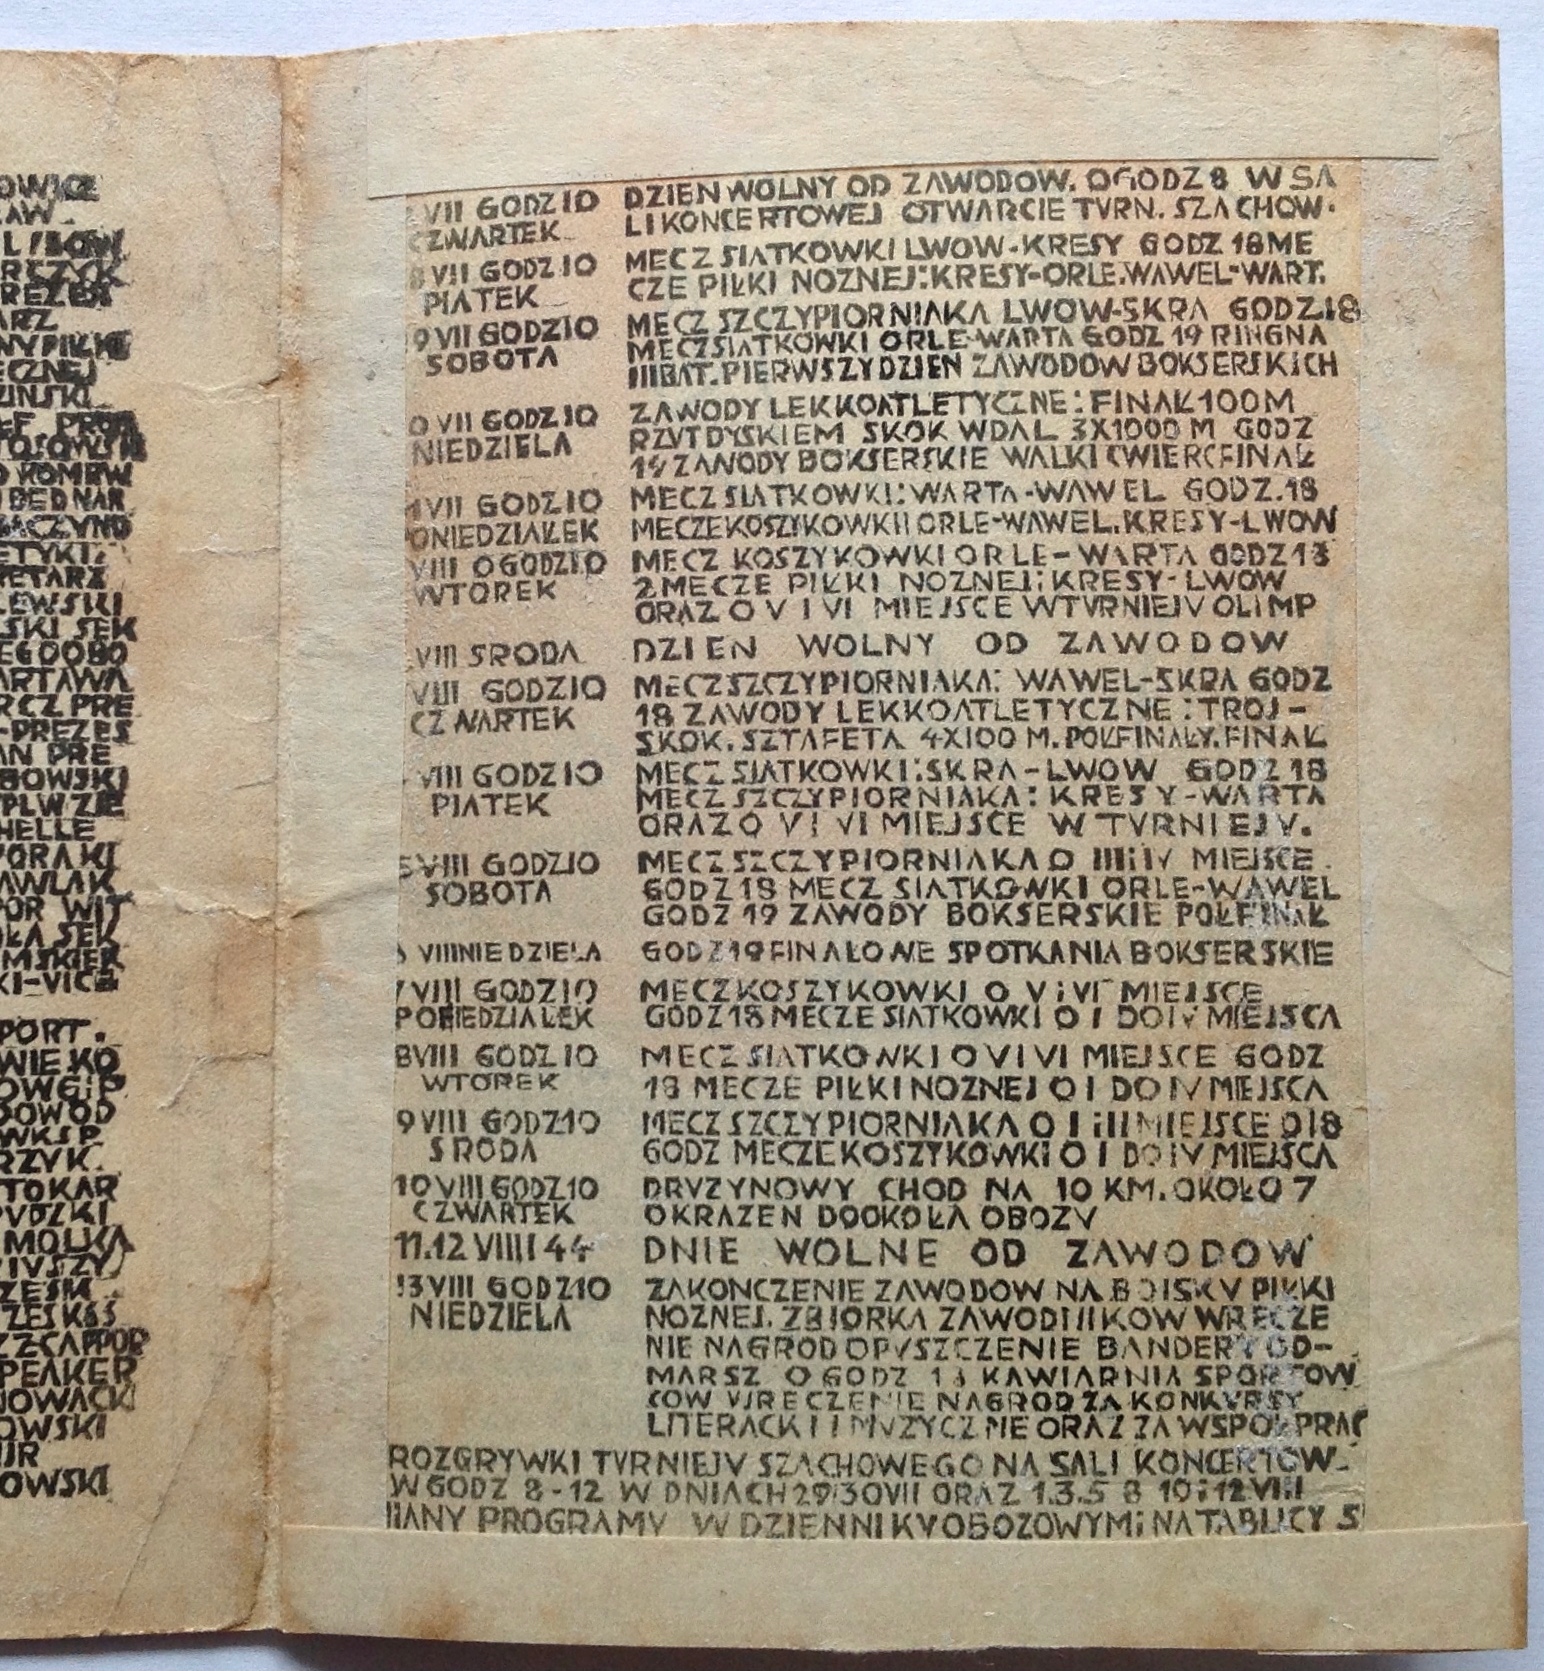 OWICZ
ZAW.
REZES
ARZ
NY PIŁKI
ECZNEJ
ZINSKI
O KOMRW
BEDNAR
ACZYNO
ETYKI:
RETARZ
LEWSKI
LSKI SEK
EGO OBO
ARTAWA
RCZ PRE
-PREZES
AN PRE
BOWSKI
PLW ZIE
HELLE
WORAKI
AWLAK
POR WIT
OŁA SEK
MSKIER
KI-VICE
PORT.
WIESKO
DOWOD
WKSP
RZYK.
TOKAR
RUDZKI
MOLKA
IVSZY
PEAKER
NOWACKI
OWSKI
IJR
OWSKI
VII GODZ 10 DZIEN WOLNY OD ZAWODOW. O GODZ 8 W SA
CZWARTEK LI KONCERTOWEJ OTWARCIE TVRN. SZACHOW.
8 VII GODZ 10 MECZ SIATKOWKI LWOW-KRESY GODZ 18 ME
PIATEK CZE PIŁKI NOZNEJ: KRESY-ORLE. WAWEL-WART.
9 VII GODZ 10 MECZ SZCZYPIORNIAKA LWOW-SKRA GODZ.18
SOBOTA MECZ SIATKOWKI ORLE-WARTA GODZ 19 RING NA
III BAT. PIERWSZY DZIEN ZAWODOW BOKSERSKICH
0 VII GODZ 10 ZAWODY LEKKOATLETYCZNE: FINAŁ 100 M
NIEDZIELA RZVT DYSKIEM SKOK WDAL 3X1000 M GODZ
19 ZAWODY BOKSERSKIE WALKI CWIERCFINAŁ
1 VII GODZ 10 MECZ SIATKOWKI: WARTA-WAWEL GODZ.18
PONIEDZIAŁEK MECZE KOSZYKOWKII ORLE-WAWEL. KRESY-LWOW
VIII O GODZ 10 MECZ KOSZYKOWKI ORLE-WARTA GODZ 18
WTOREK 2 MECZE PIŁKI NOZNEJ: KRESY-LWOW
ORAZ O V I VI MIEJSCE W TVRNIEJV OLIMP
VIII SRODA DZIEN WOLNY OD ZAWODOW
VIII GODZ 10 MECZ SZCZYPIORNIAKA: WAWEL-SKRA GODZ
CZWARTEK 18 ZAWODY LEKKOATLETYCZNE: TROJ-
SKOK. SZTAFETA 4X100 M. POŁFINAŁY. FINAŁ
VIII GODZ 10 MECZ SIATKOWKI: SKRA-LWOW GODZ 18
PIATEK MECZ SZCZYPIORNIAKA: KRESY-WARTA
ORAZ O V I VI MIEJSCE W TVRNIEJV.
5 VIII GODZ 10 MECZ SZCZYPIORNIAKA O III i IV MIEJSCE.
SOBOTA GODZ 18 MECZ SIATKOWKI ORLE-WAWEL
GODZ 19 ZAWODY BOKSERSKIE POŁFINAŁ
6 VIII NIEDZIELA GODZ 19 FINAŁOWE SPOTKANIA BOKSERSKIE
7 VIII GODZ 10 MECZ KOSZYKOWKI O V i VI MIEJSCE
PONIEDZIALEK GODZ 18 MECZE SIATKOWKI O I DO IV MIEJSCA
8 VIII GODZ 10 MECZ SIATKOWKI O V I VI MIEJSCE GODZ
WTOREK 18 MECZE PIŁKI NOZNEJ O I DO IV MIEJSCA
9 VIII GODZ 10 MECZ SZCZYPIORNIAKA O I i II MIEJSCE O 18
SRODA GODZ MECZE KOSZYKOWKI O I DO IV MIEJSCA
10 VIII GODZ 10 DRVZYNOWY CHOD NA 10 KM. OKOŁO 7
CZWARTEK OKRAZEN DOOKOŁA OBOZV
11.12 VIIII 44 DNIE WOLNE OD ZAWODOW
13 VIII GODZ 10 ZAKONCZENIE ZAWODOW NA BOISKV PIŁKI
NIEDZIELA NOZNEJ. ZBIORKA ZAWODNIKOW WRECZE
NIE NAGROD OPVSZCZENIE BANDERY OD-
MARSZ O GODZ 18 KAWIARNIA SPORTOW
COW WRECZENIE NAGROD ZA KONKVRSY
LITERACKI I MVZYCZNE ORAZ ZA WSPOŁPRAC
ROZGRYWKI TVRNIEJV SZACHOWEGO NA SALI KONCERTOW.
W GODZ 8-12 W DNIACH 29i30VII ORAZ 1.3.5 8 10 i 12 VIII
IIANY PROGRAMV W DZIENNIKV OBOZOWYM i NA TABLICY S